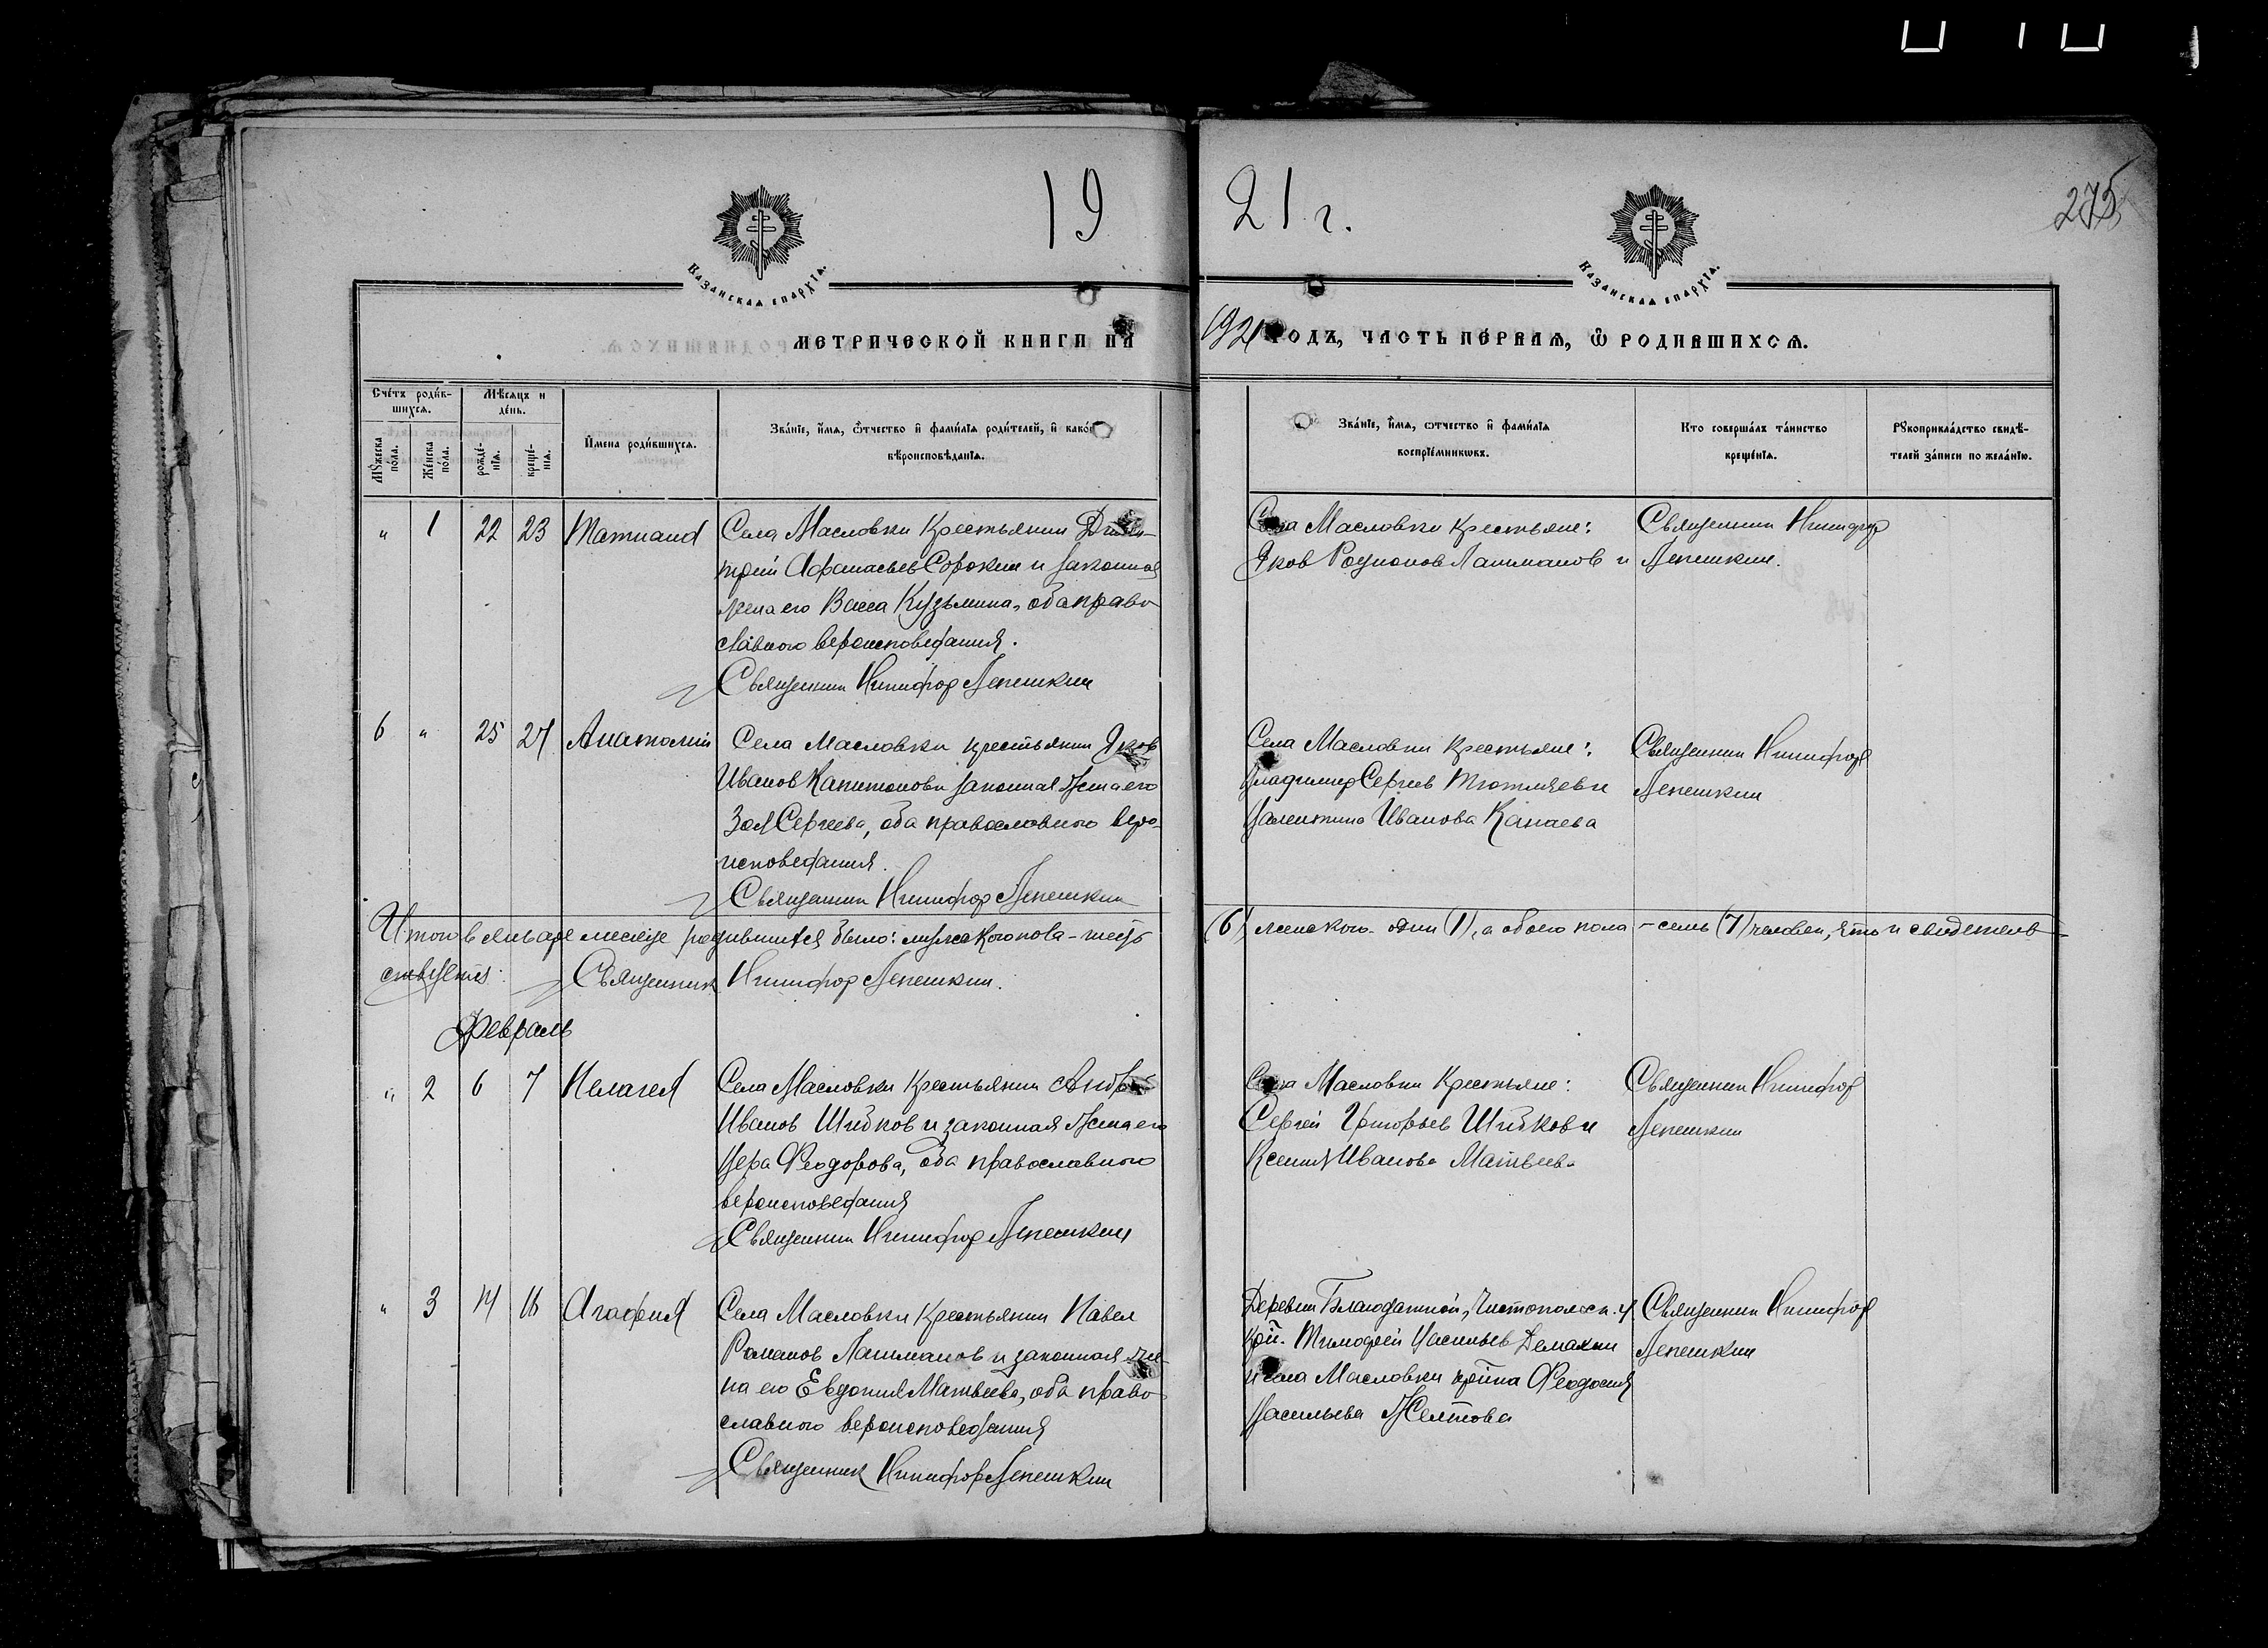 19 21 г.
275
Казанская епархїя.
Казанская епархїя.
МЕТРИЧЕСКОЙ КНИГИ НА 1921 ГОДЪ, ЧАСТЬ ПЕРВАЯ, Ѿ РОДИВШИХСЯ.
Счетъ родившихся.
Мѣсяцъ и день.
Мужеска пола.
Женска пола.
рожденїя.
крещенїя.
Имена родившихся.
Званїе, имя, отчество и фамилїя родителей, и какого
вѣроисповѣданїя.
Званїе, имя, отчество и фамилїя
воспрїемниковъ.
Кто совершалъ таинство
крещенїя.
Рукоприкладство свидѣ-
телей записи по желанїю.
" 1 22 23 Татиана
Села Масловки Крестьянин Дими-
трий Афанасьев Сорокин и законная
жена его Васса Кузьмина, оба право
славного вероисповедания.
Священник Никифор Лепешкин
Села Масловки Крестьяне:
Яков Родионов Лашманов и
Священник Никифор
Лепешкин.
6 " 25 27 Анатолий
Села Масловки крестьянин Яков
Иванов Капитонов и законная жена его
Зоя Сергеева, оба православного веро-
исповедания.
Священник Никифор Лепешкин
Села Масловки Крестьяне:
Владимир Сергеев и
Валентина Иванова Канаева
Священник Никифор
Лепешкин
Итого в январе месяце родившихся было: мужского пола - шесть (6) женского один (1), а обоего пола - семь (7) человек, что и свидетель
ствуется: Священник Никифор Лепешкин.
Февраль
" 2 6 7 Пелагея
Села Масловки Крестьянин Андрей
Иванов Шибков и законная жена его
Вера Феодорова, оба православного
вероисповедания
Священник Никифор Лепешкин
Села Масловки Крестьяне:
Сергей Григорьев Шибков и
Ксения Иванова Матвеева
Священник Никифор
Лепешкин
" 3 14 16 Агафия
Села Масловки Крестьянин Павел
Романов Лашманов и законная же-
на его Евдокия Матвеева, оба право
славного вероисповедания
Священник Никифор Лепешкин
Деревни Благодатной, Чистопольск. у.
кр. Тимофей Васильев Демахин
и села Масловки Феодосия
Васильева Желтова
Священник Никифор
Лепешкин